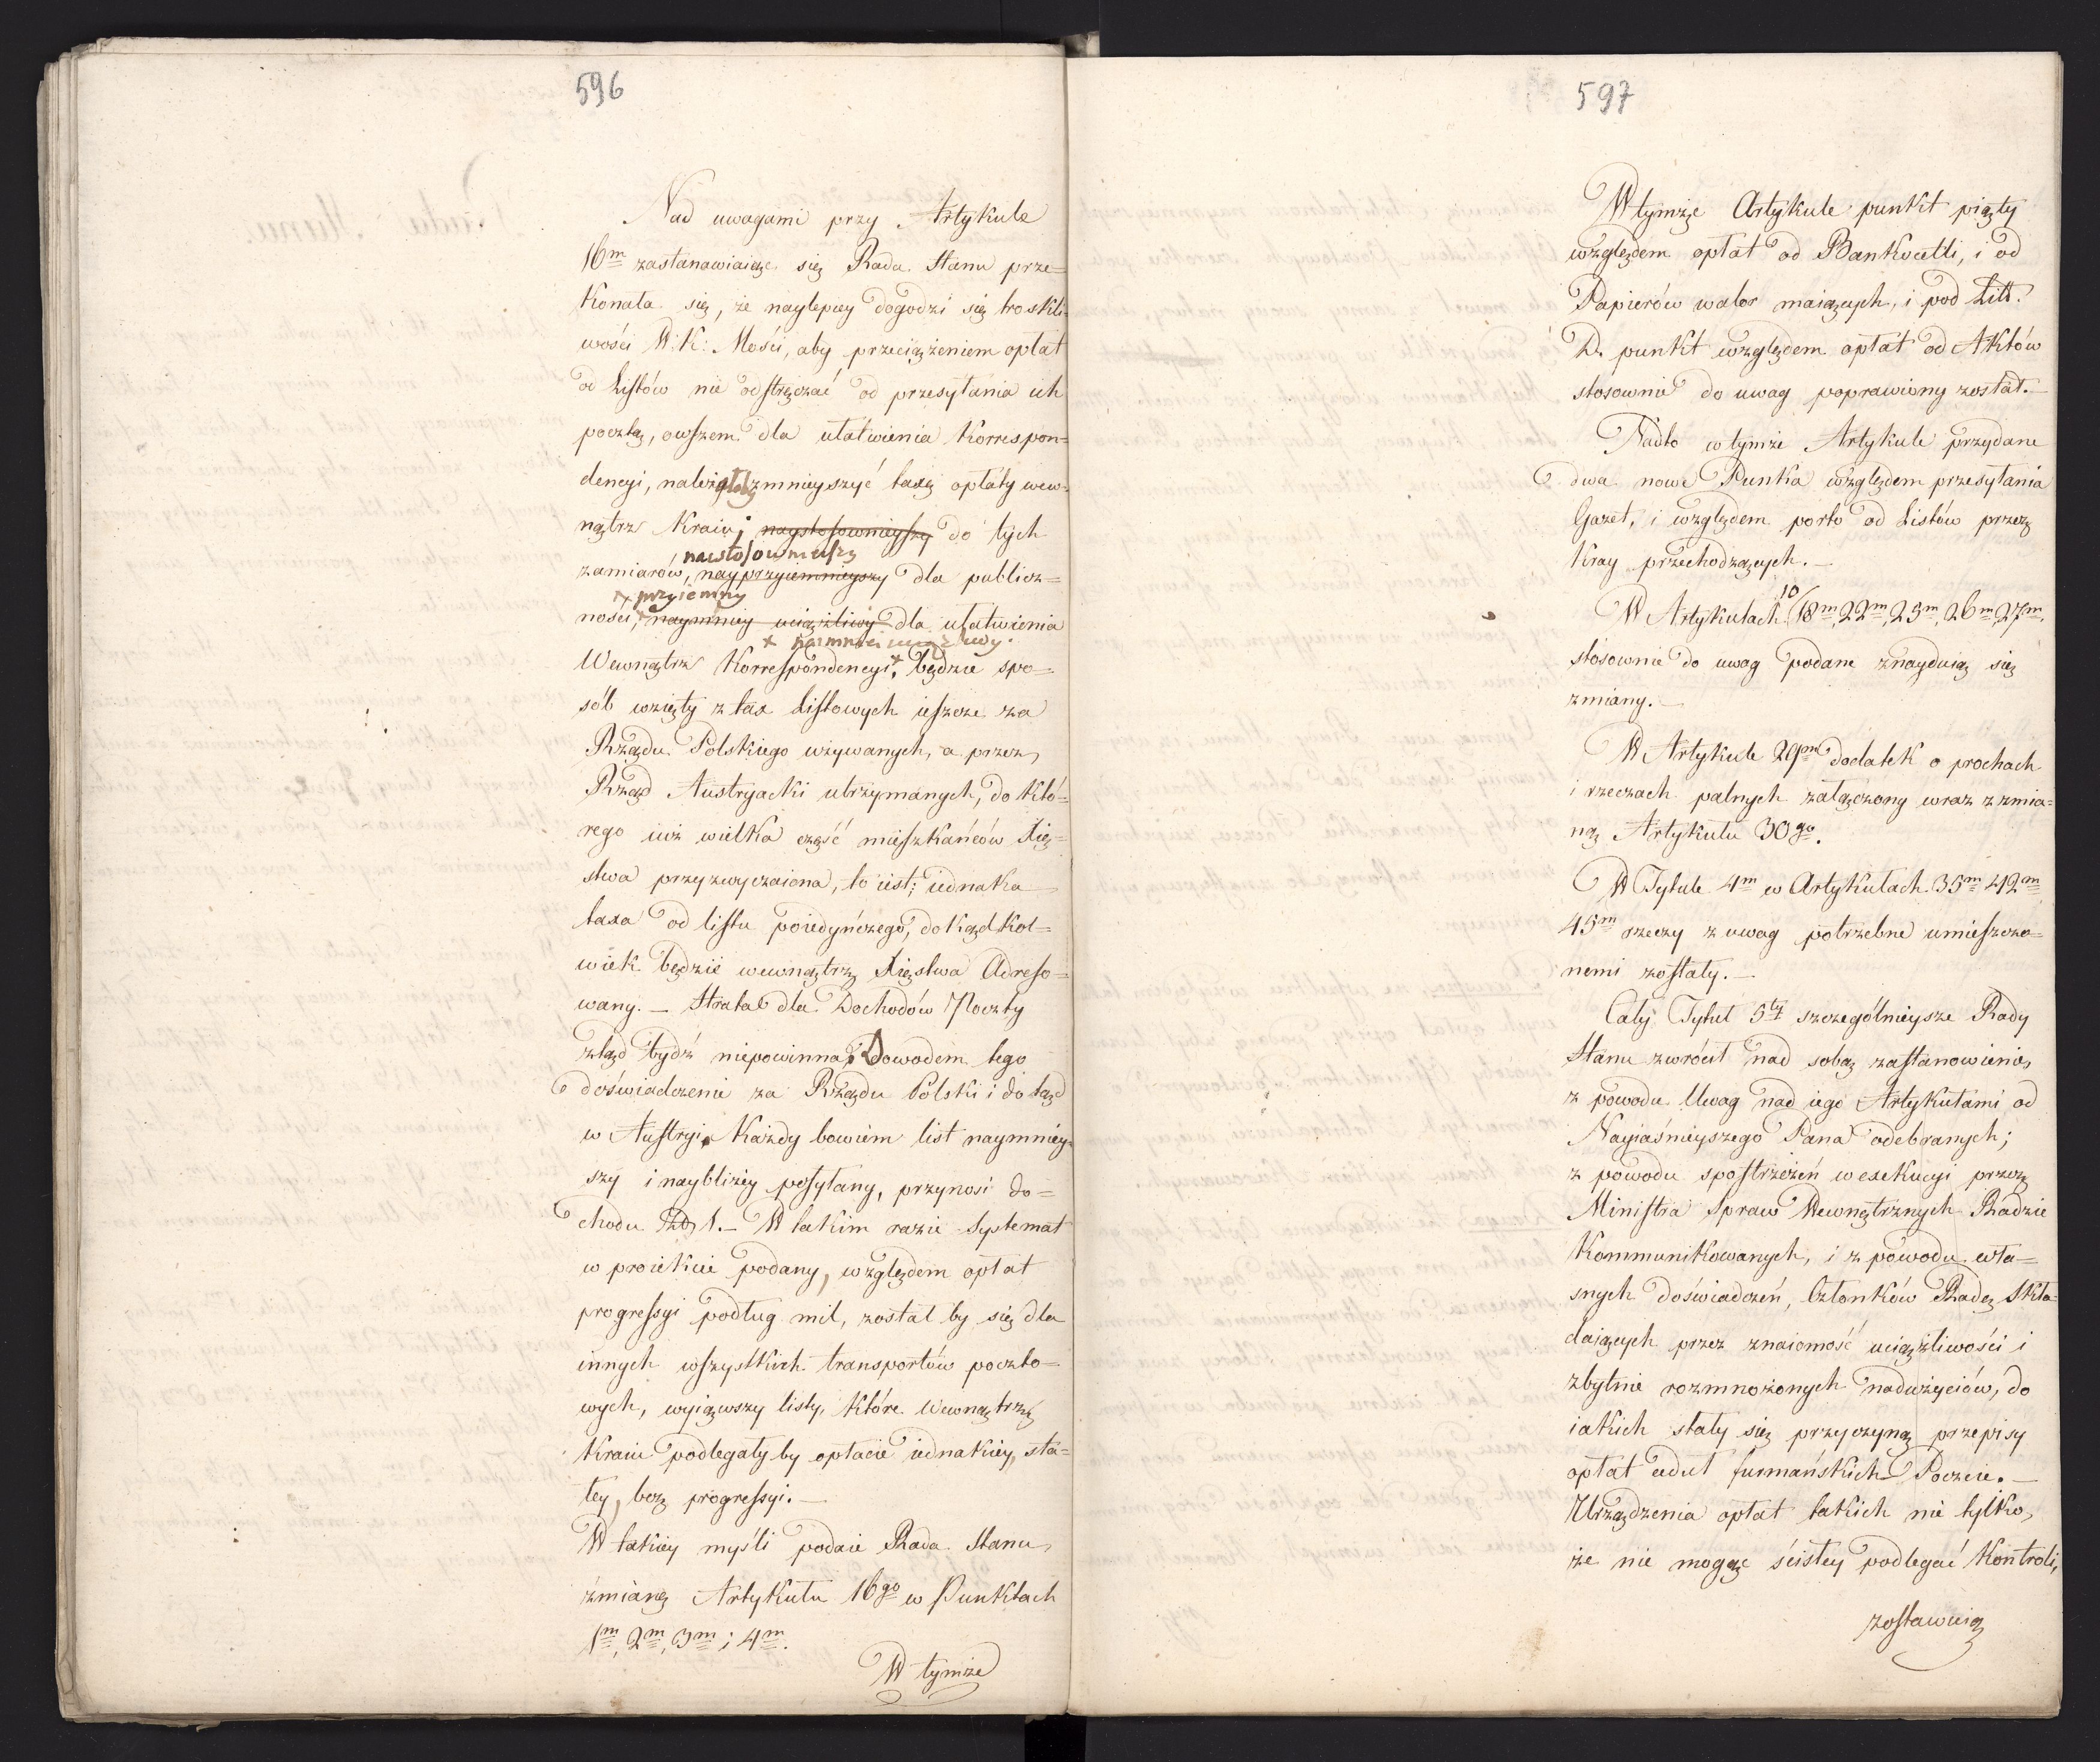 596
Nad uwagami przy Artykule
16m zastanawiaiąc się Rada Stanu prze=
konała się, że naylepiey dogodzi się troskli=
wości W: K: Mości, aby przeciążeniem opłat
od Listów nie odstręczać od przesyłania ich
pocztą, owszem dla ułatwienia Korrespon=
dencyi, należałoby zmnieyszyć taxę opłaty wew=
nątrz Kraiu; naystosownieyszy do tych
naistosownieyszy
zamiarów, nayprzyiemnieyszy dla publicz=
x przyiemny
ności, naymniey uciążliwy dla ułatwienia
x naimniei uciążliwy.
Wewnątrz Korrespondencyi, x będzie spo=
sób wzięty z tax Listowych ieszcze za
Rządu Polskiego używanych, a przez
Rząd Austryacki utrzymanych, do któ=
rego iuż wielka część mieszkańców Xię=
stwa przyzwyczaiona, to iest: iednaka
taxa od listu poiedyńczego, dokądkol=
wiek będzie wewnątrz Xięstwa Adreso=
wany. — Strata dla Dochodów Poczty
ztąd bydź niepowinna, Dowodem tego
doświadczenie za Rządu Polski i dotąd
w Austryi. Każdy bowiem list naymniey=
szy i naybliżey posyłany, przynosi do=
chodu 1. — W takim razie Systemat
w proiekcie podany, względem opłat
progressyi podług mil, został by się dla
innych wszystkich transportów poczto=
wych, wyiąwszy listy, które Wewnątrz
Kraiu podlegały by opłacie iednakiey, sta=
łey, bez progressyi. —
W takiey myśli podaie Rada Stanu
zmianę Artykułu 16go w Punktach
1m, 2m, 3m i 4m.
W tymże
597
W tymże Artykule punkt piąty
względem opłat od Bankocetli, i od
Papierów walor maiących, i pod Litt.
D. punkt względem opłat od Aktów
stosownie do uwag poprawiony został. —
Nadto w tymże Artykule przydane
dwa nowe Punkta względem przesyłania
Gazet, i względem porto od Listów przez
Kray przechodzących. —
10
W Artykułach 18m, 22m, 25m, 26m, 27m,
stosownie do uwag podane znayduią się
zmiany. —
W Artykule 29m dodatek o prochach
i rzeczach palnych załączony wraz z zmia=
ną Artykułu 30go.
W Tytule 4m w Artykułach 35m 42m
45m rzeczy z uwag potrzebne umieszczo=
nemi zostały. —
Cały Tytuł 5ty szczególnieysze Rady
Stanu zwrócił nad sobą zastanowienie,
z powodu Uwag nad iego Artykułami od
Nayiaśnieyszego Pana odebranych;
z powodu spostrzeżeń w exekucyi przez
Ministra Spraw Wewnętrznych Radzie
Kommunikowanych, i z powodu wła=
snych doświadczeń, Członków Radę skła=
daiących przez znaiomość uciążliwości i
zbytnie rozmnożonych nadużyciów, do
iakich stały się przyczyną przepisy
opłat cedul furmańskich Poczcie. —
Urządzenia opłat takich nie tylko,
że nie mogąc ścisłey podlegać Kontroli,
zostawuią